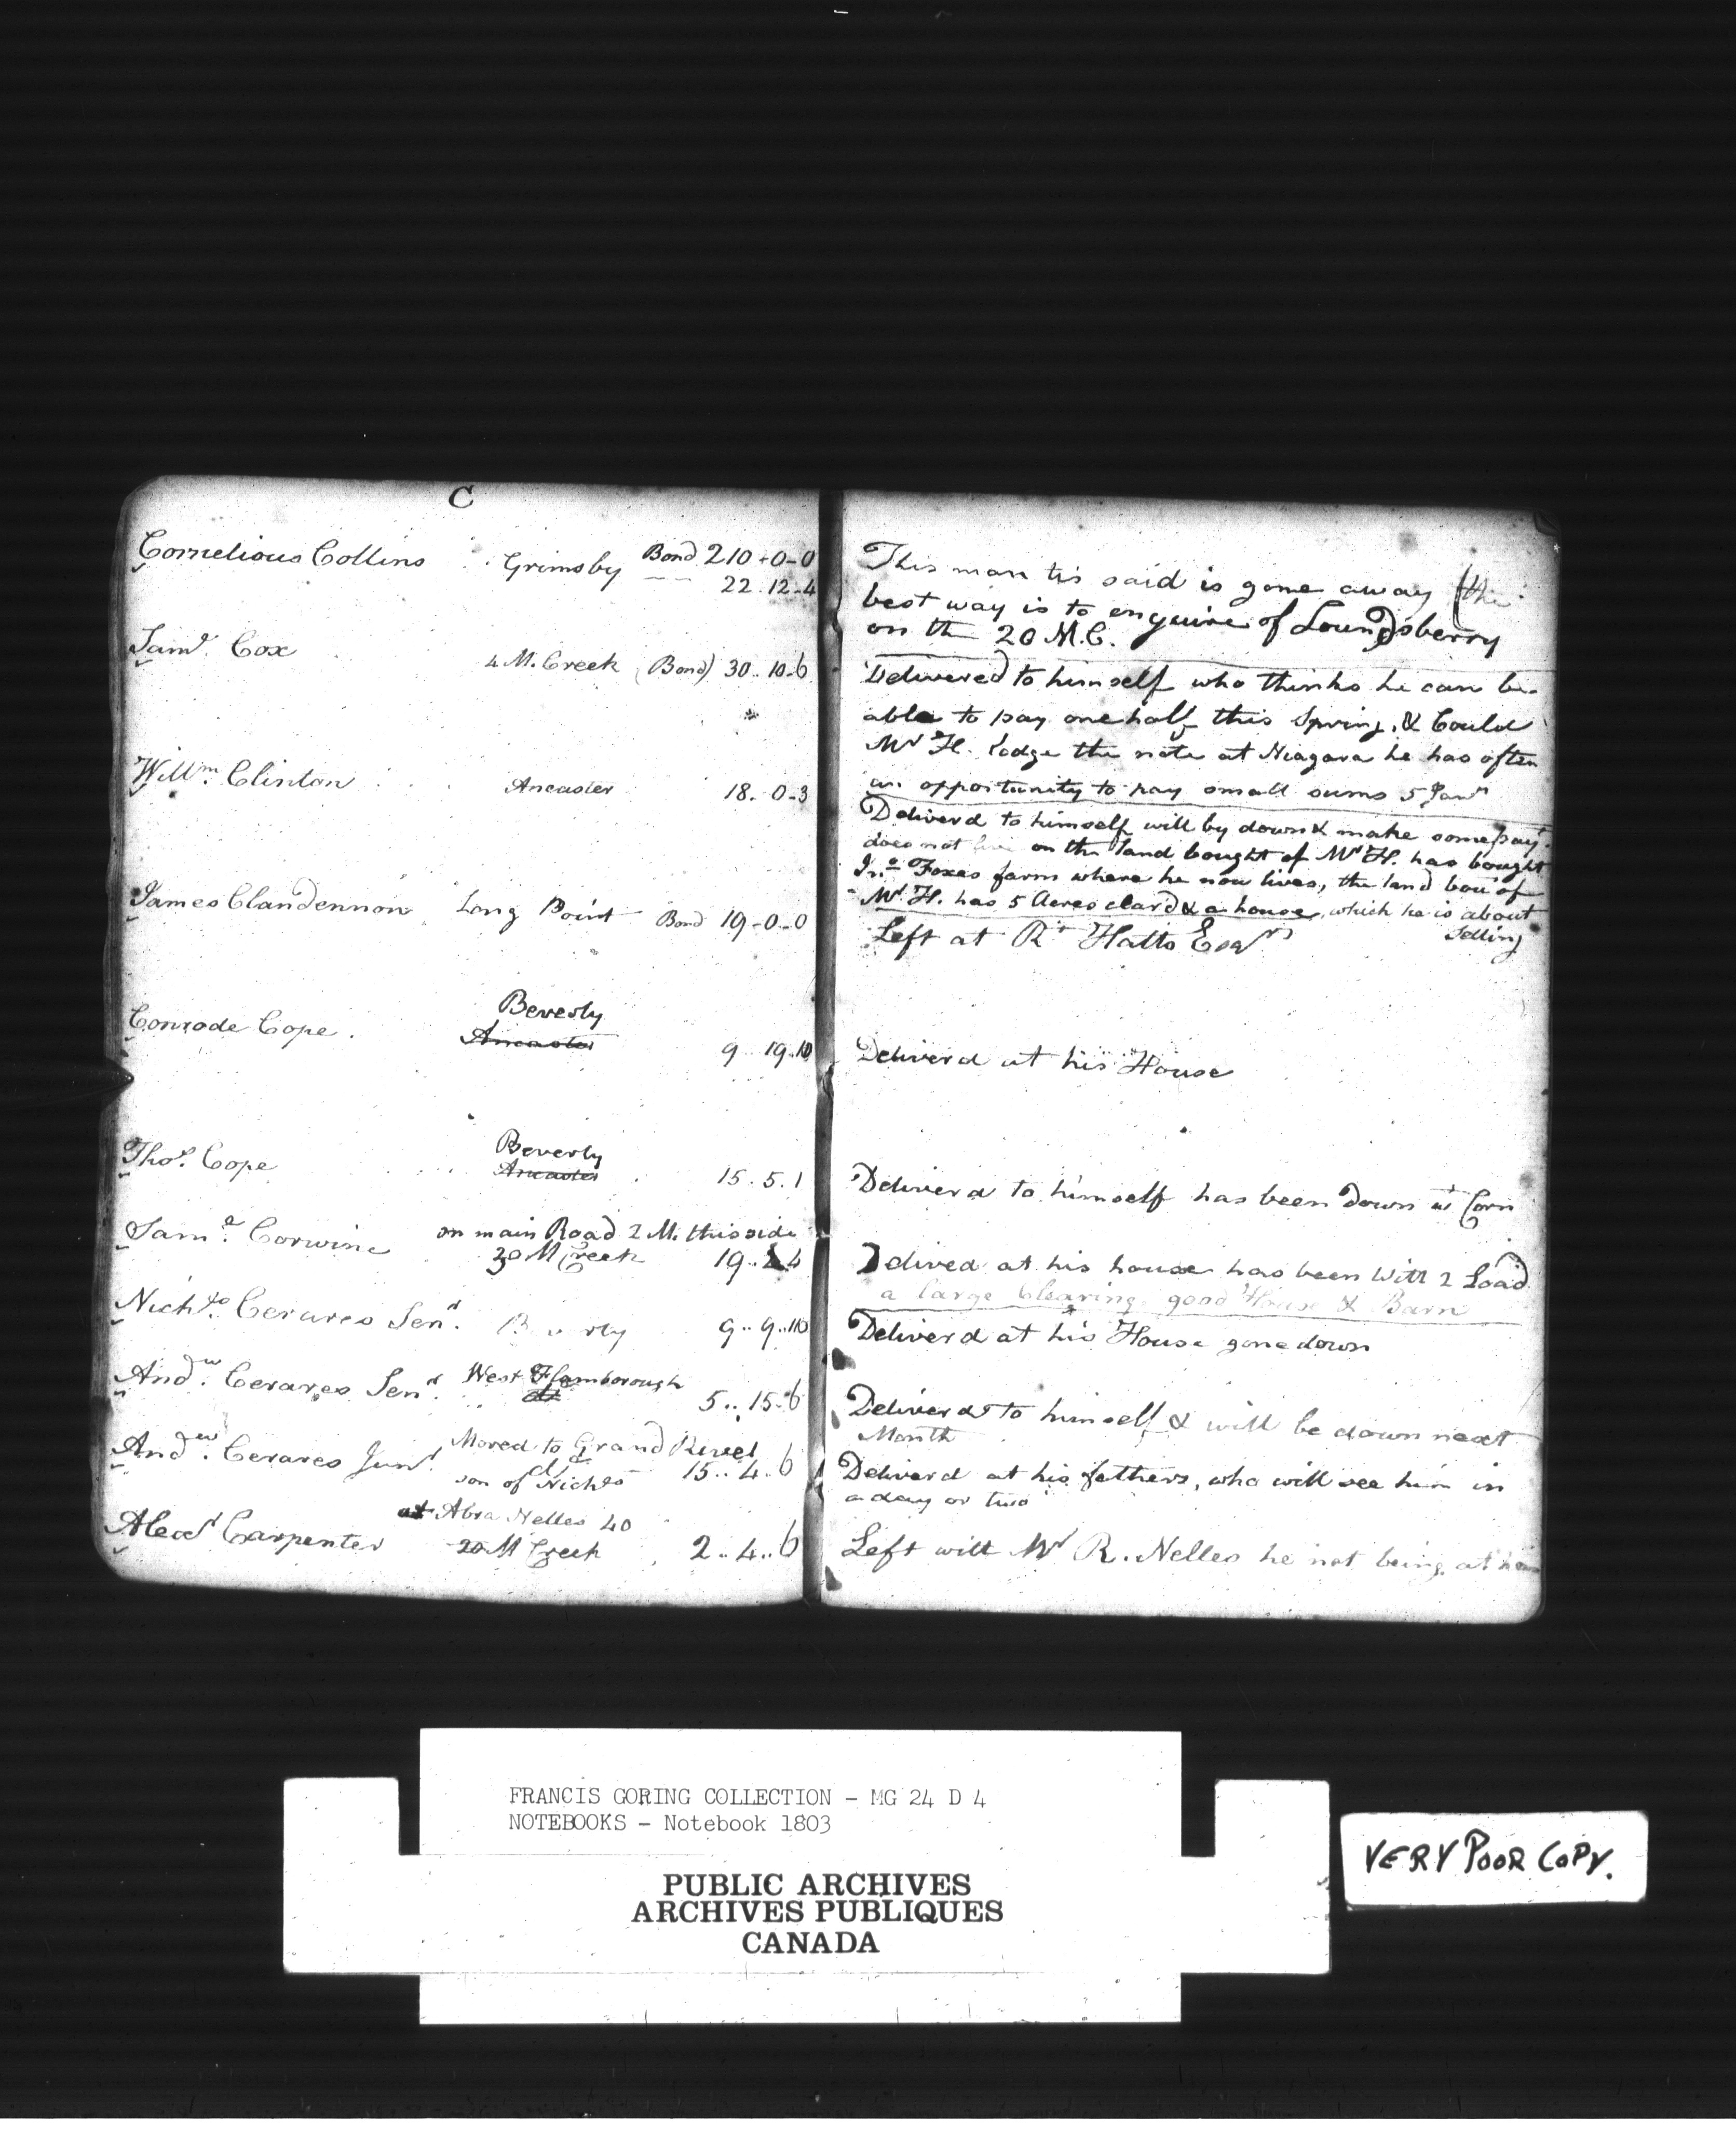 C
Cornelious Collins Grimsby Bond 210-0-0
22.12-4
Saml. Cox 4 M. Creek (Bond) 30..10-6
Willm. Clinton Ancaster 18.-0-3
James Clandennon Long Point Bond 19-0-0
Beverly
Conrode Cope. Ancaster 9..19..10
Beverly
Thos. Cope Ancaster 15.5.1
on main Road 2 M. this side
Saml. Corwine 30 M Creek 19..2 4
Nichls Cerares Senr. B rly 9..9..10
Andw. Cerares Senr. West Flamborough
5..15-6
Moved to Grand River
Andw. Cerares Junr. son of Nichls 15..4..6
at Abra Nelles 40
Alexr Carpenter 20 M Creek 2..4..6
This man tis said is gone away (the
best way is to enquire of Loundsberry
on th 20 M.C.
Delivered to himself who thinks he can be
able to pay one half this Spring, & Could
Mr H. lodge the note at Niagara he has often
an opportunity to pay small sums 5 Jany
Deliverd to himself will by down & make some payt.
does not live on the land bought of Mr H. has bought
Jno Foxes farm where he now lives, the land bou of
Mr H. has 5 Acres clard & a house, which he is about
selling
Left at Rt Hatts Esqr
Deliverd at his House
Deliverd to himself has been down wt Corn
Delived at his house has been Witt 2 Load
a large Clearing, good House & Barn
Deliverd at his House gone down
Deliverd to himself & will be down next
Month
Deliverd at his fathers, who will see him in
a day or two
Left witt Mr R. Nelles he not being at
FRANCIS GORING COLLECTION - MG 24 D 4
NOTEBOOKS - Notebook 1803
PUBLIC ARCHIVES
ARCHIVES PUBLIQUES
CANADA
VERY POOR COPY.